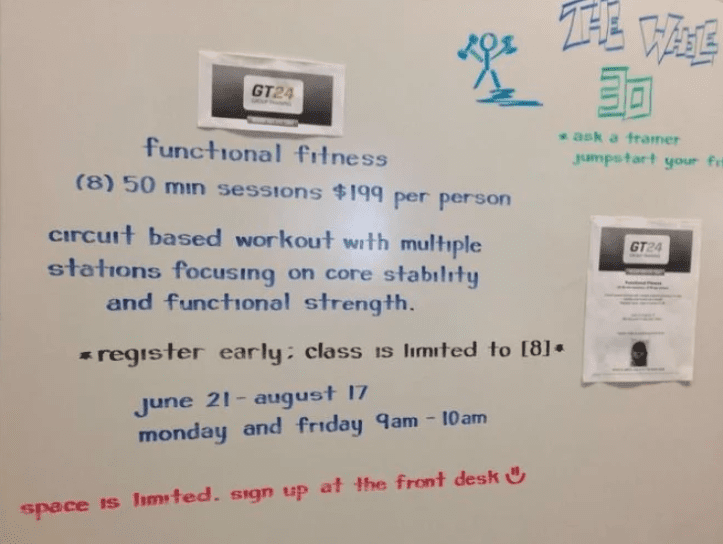 THE WHOLE
30
* ask a trainer
jumpstart your
GT24
GROUP TRAINING
functional fitness
(8) 50 min sessions $199 per person
circuit based workout with multiple
stations focusing on core stability
and functional strength.
*register early; class is limited to [8]*
june 21 - august 17
monday and friday 9am - 10am
space is limited. sign up at the front desk
GT24
Functional Fitness